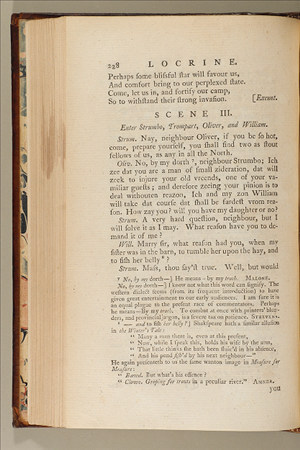 228 LOCRINE.
Perhaps some blissful star will favour us,
And comfort bring to our perplexed state.
Come, let us in, and fortify our camp,
So to withstand their strong invasion. [Exeunt.
SCENE III.
Enter Strumbo, Trompart, Oliver, and William.
Strum. Nay, neighbour Oliver, if you be so hot,
come, prepare yourself, you shall find two as stout
fellows of us, as any in all the North.
Oliv. No, by my dorth ⁵, neighbour Strumbo; Ich
zee dat you are a man of small zideration, dat will
zeek to injure your old vreends, one of your va-
miliar guests; and derefore zeeing your pinion is to
deal withouten reazon, Ich and my zon William
will take dat course dat shall be fardest vrom rea-
son. How zay you? will you have my daughter or no?
Strum. A very hard question, neighbour, but I
will solve it as I may. What reason have you to de-
mand it of me?
Will. Marry sir, what reason had you, when my
sister was in the barn, to tumble her upon the hay, and
to fish her belly ⁶?
Strum. Mass, thou say'st true. Well, but would
⁵ No, by my dorth—] He means - by my troth. MALONE.
No, by my dorth—] I know not what this word can signify. The
western dialect seems (from its frequent introduction) to have
given great entertainment to our early audiences. I am sure it is
an equal plague to the present race of commentators. Perhaps
he means—By my troth. To combat at once with printers' blun-
ders, and provincial jargon, is a severe tax on patience. STEEVENS.
⁶ — and to fish her belly?] Shakspeare has such a similar allusion
in the Winter's Tale:
" Many a man there is, even at this present,
" Now, while I speak this, holds his wife by the arm,
" That little thinks she hath been sluic'd in his absence,
" And his pond fish'd by his next neighbour—"
He again personates to us the same wanton image in Measure for
Measure:
" Bawd. But what's his offence?
" Clown. Groping for trouts in a peculiar river."
you